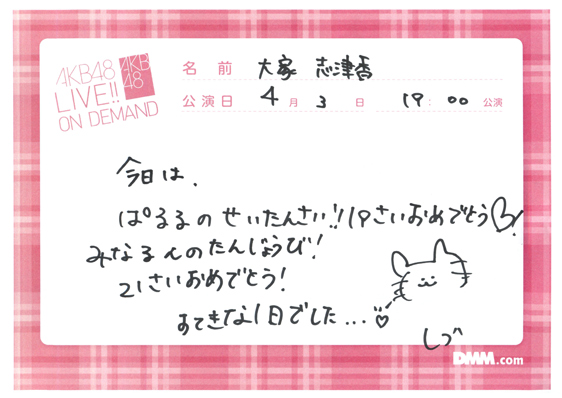 AKB48
LIVE!!
ON DEMAND
AKB
48
名前 大家 志津香
公演日 4月3日 19:00公演
今日は、
ぱるるの せいたんさい!! 19さいおめでとう♡!
みなるんのたんじょうび!
21さいおめでとう!
すてきな1日でした...♡
しづ
DMM.com